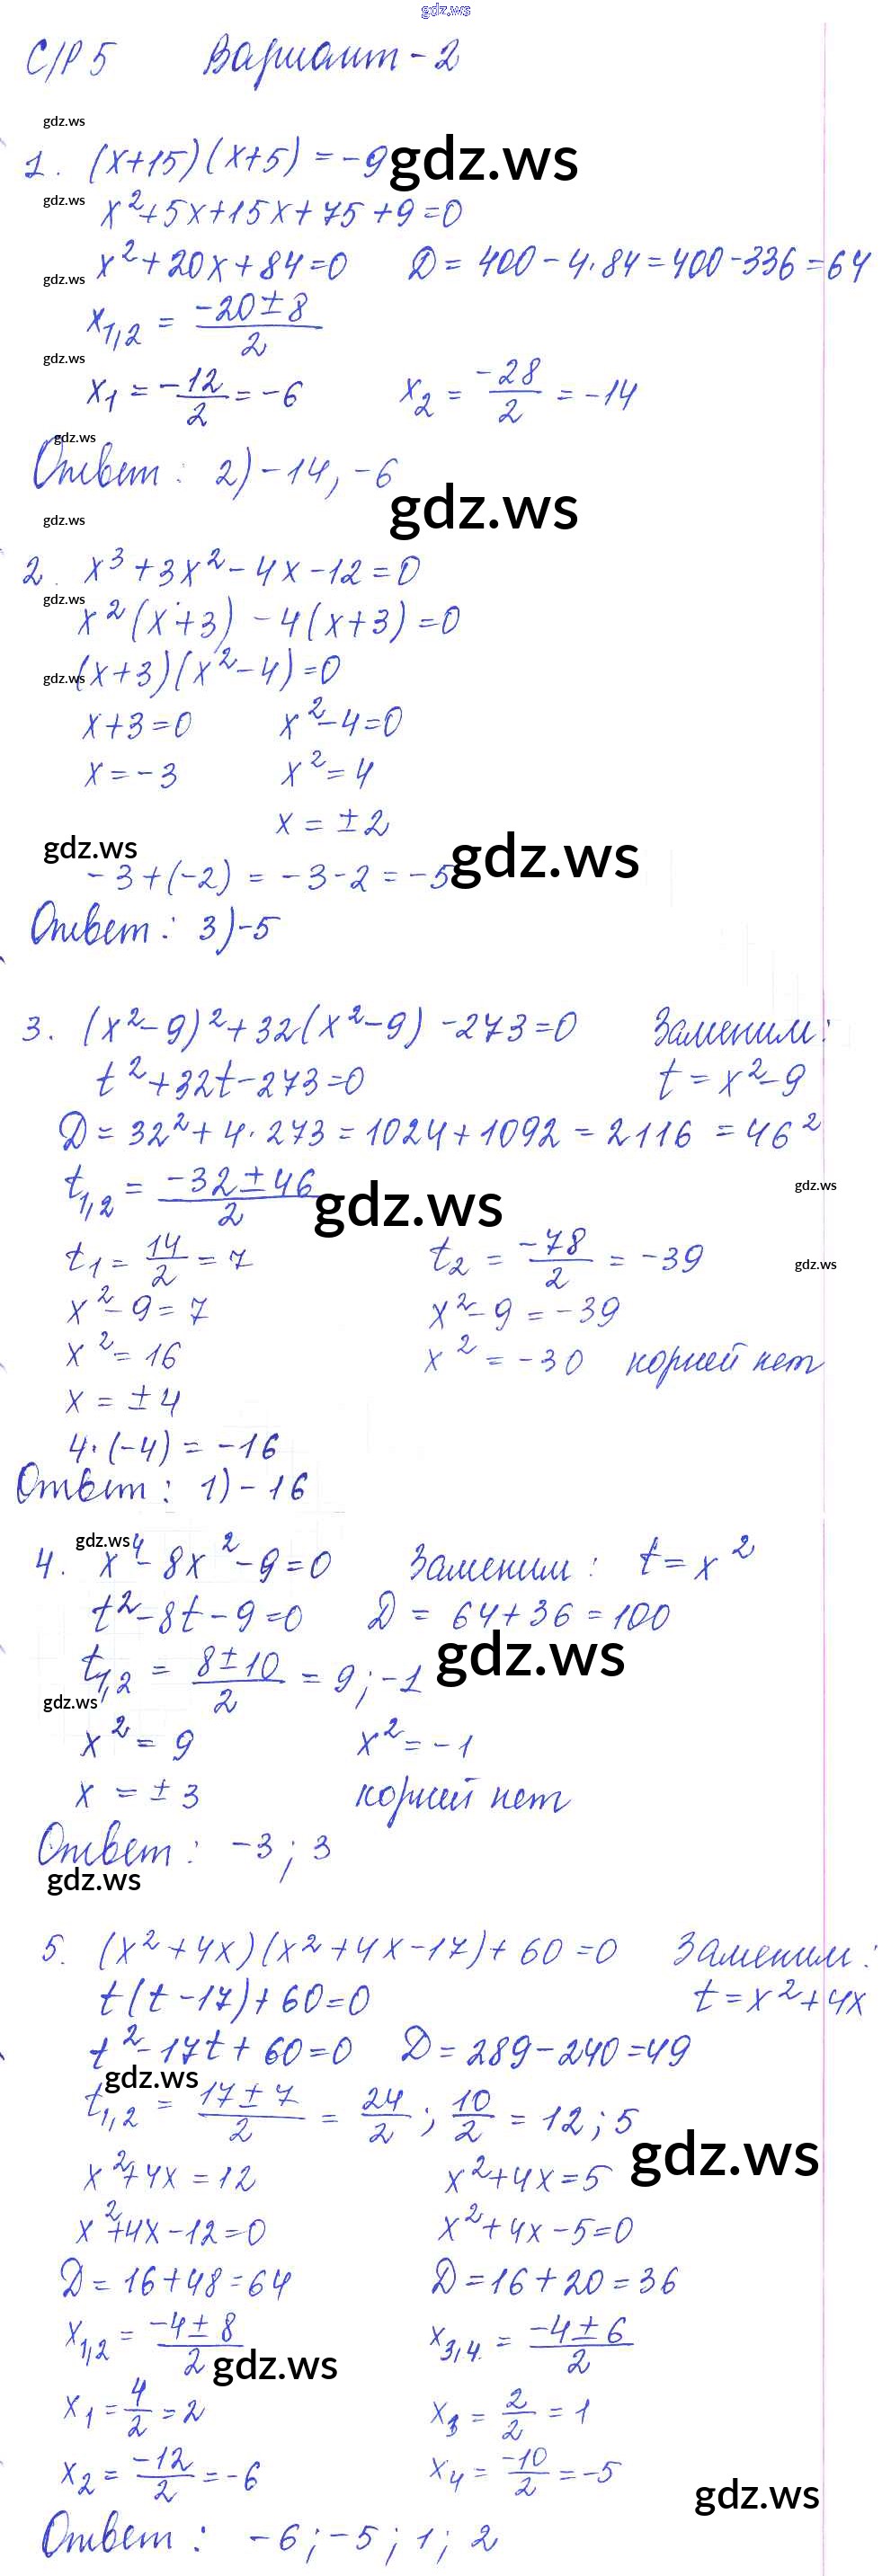 gdz.ws
С/Р 5 Вариант - 2
gdz.ws
1. (x+15)(x+5) = -9 gdz.ws
gdz.ws x²+5x+15x+75+9=0
gdz.ws x²+20x+84=0 D = 400-4·84=400-336=64
x₁,₂ = (-20±8)/2
gdz.ws
x₁ = -12/2 = -6 x₂ = -28/2 = -14
gdz.ws
Ответ: 2) -14, -6
gdz.ws gdz.ws
2. x³+3x²-4x-12=0
gdz.ws
x²(x+3) -4(x+3)=0
gdz.ws (x+3)(x²-4)=0
x+3=0 x²-4=0
x=-3 x²=4
x = ±2
gdz.ws gdz.ws
-3+(-2) = -3-2 = -5
Ответ: 3)-5
3. (x²-9)²+32(x²-9)-273=0 Заменим:
t²+32t-273=0 t=x²-9
D=32²+4·273=1024+1092=2116=46²
t₁,₂ = (-32±46)/2 gdz.ws gdz.ws
t₁=14/2=7 t₂ = -78/2 = -39 gdz.ws
x²-9=7 x²-9=-39
x²=16 x²=-30 корней нет
x = ±4
4·(-4) = -16
Ответ: 1) -16
gdz.ws
4. x⁴-8x²-9=0 Заменим: t=x²
t²-8t-9=0 D = 64+36=100
t₁,₂ = (8±10)/2 = 9;-1 gdz.ws
gdz.ws
x² = 9 x²=-1
x = ±3 корней нет
Ответ: -3; 3
gdz.ws
5. (x²+4x)(x²+4x-17)+60=0 Заменим:
t(t-17)+60=0 t=x²+4x
t²-17t+60=0 D=289-240=49
gdz.ws
t₁,₂ = (17±7)/2 = 24/2; 10/2 = 12; 5
gdz.ws
x²+4x=12 x²+4x=5
x²+4x-12=0 x²+4x-5=0
D=16+48=64 D=16+20=36
x₁,₂ = (-4±8)/2 x₃,₄. = (-4±6)/2
gdz.ws
x₁=4/2=2 x₃ = 2/2 = 1
x₂=-12/2=-6 x₄ = -10/2 = -5
gdz.ws
Ответ: -6;-5; 1; 2